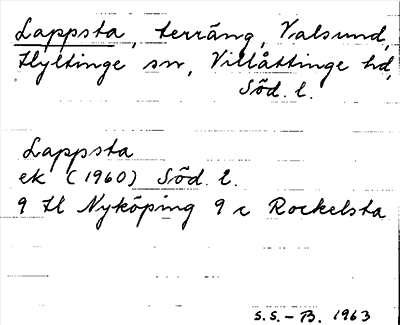 Lappsta, terräng, Valsund,
Hyltinge sn, Villåttinge hd,
Söd. l.
Lappsta
ek (1960) Söd. l.
9 H Nyköping 9 c Rockelsta
S.S.-B. 1963